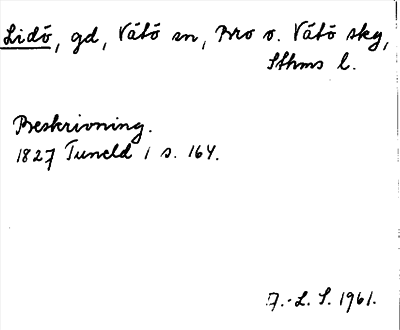 Lidö, gd, Vätö sn, Bro o. Vätö skg,
Sthms l.
Beskrivning.
1827 Tuneld 1 s. 164.
A.-L. S. 1961.